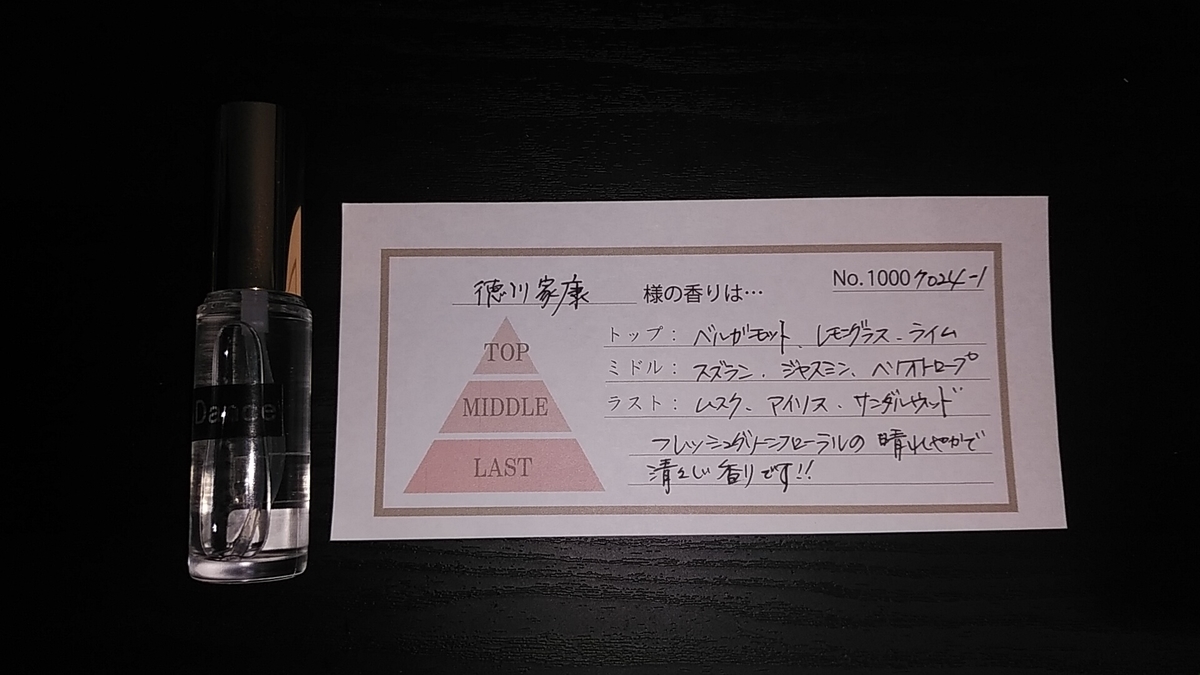 Dance
徳川家康 様の香りは…
No.1000 7024-1
TOP
MIDDLE
LAST
トップ: ベルガモット、レモングラス、ライム
ミドル: スズラン、ジャスミン、ヘリオトロープ
ラスト: ムスク、アイリス、サンダルウッド
フレッシュグリーンフローラルの晴れやかで
清々しい香りです!!